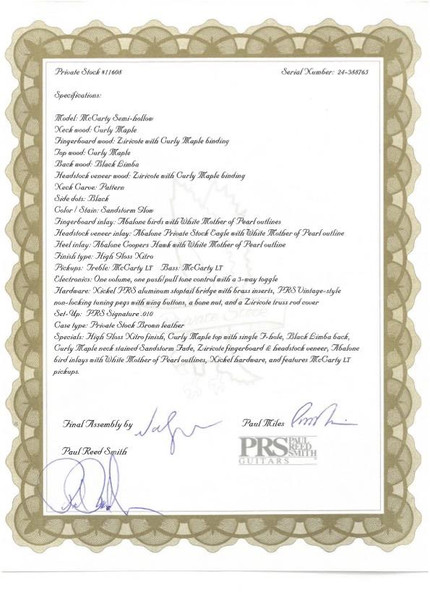 Private Stock #11608 Serial Number: 24-388763
Specifications:
Model: McCarty Semi-hollow
Neck wood: Curly Maple
Fingerboard wood: Ziricote with Curly Maple binding
Top wood: Curly Maple
Back wood: Black Limba
Headstock veneer wood: Ziricote with Curly Maple binding
Neck Carve: Pattern
Side dots: Black
Color / Stain: Sandstorm Glow
Fingerboard inlay: Abalone birds with White Mother of Pearl outlines
Headstock veneer inlay: Abalone Private Stock Eagle with White Mother of Pearl outline
Heel inlay: Abalone Coopers Hawk with White Mother of Pearl outline
Finish type: High Gloss Nitro
Pickups: Treble: McCarty LT Bass: McCarty LT
Electronics: One volume, one push/pull tone control with a 3-way toggle
Hardware: Nickel PRS aluminum stoptail bridge with brass inserts, PRS Vintage-style
non-locking tuning pegs with wing buttons, a bone nut, and a Ziricote truss rod cover
Set-Up: PRS Signature .010
Case type: Private Stock Brown leather
Specials: High Gloss Nitro finish, Curly Maple top with single F-hole, Black Limba back,
Curly Maple neck stained Sandstorm Fade, Ziricote fingerboard & headstock veneer, Abalone
bird inlays with White Mother of Pearl outlines, Nickel hardware, and features McCarty LT
pickups.
Final Assembly by Paul Miles
Paul Reed Smith
PRS PAUL REED SMITH
GUITARS